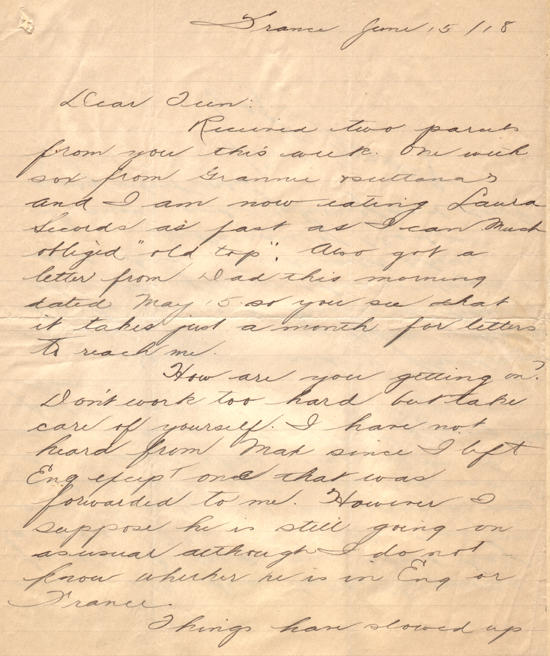 France June 15/18
Dear Teen:
Received two parcels
from you this week. One with
sox from Grannie & sultanas
and I am now eating Laura
Secords as fast as I can Much
obliged "old top". Also got a
letter from Dad this morning
dated May 15 so you see that
it takes just a month for letters
to reach me.
How are you getting on?
Don't work too hard but take
care of yourself. I have not
heard from Mat since I left
Eng except once that was
forwarded to me. However I
suppose he is still going on
as usual although I do not
know whether he is in Eng or
France.
Things have slowed up